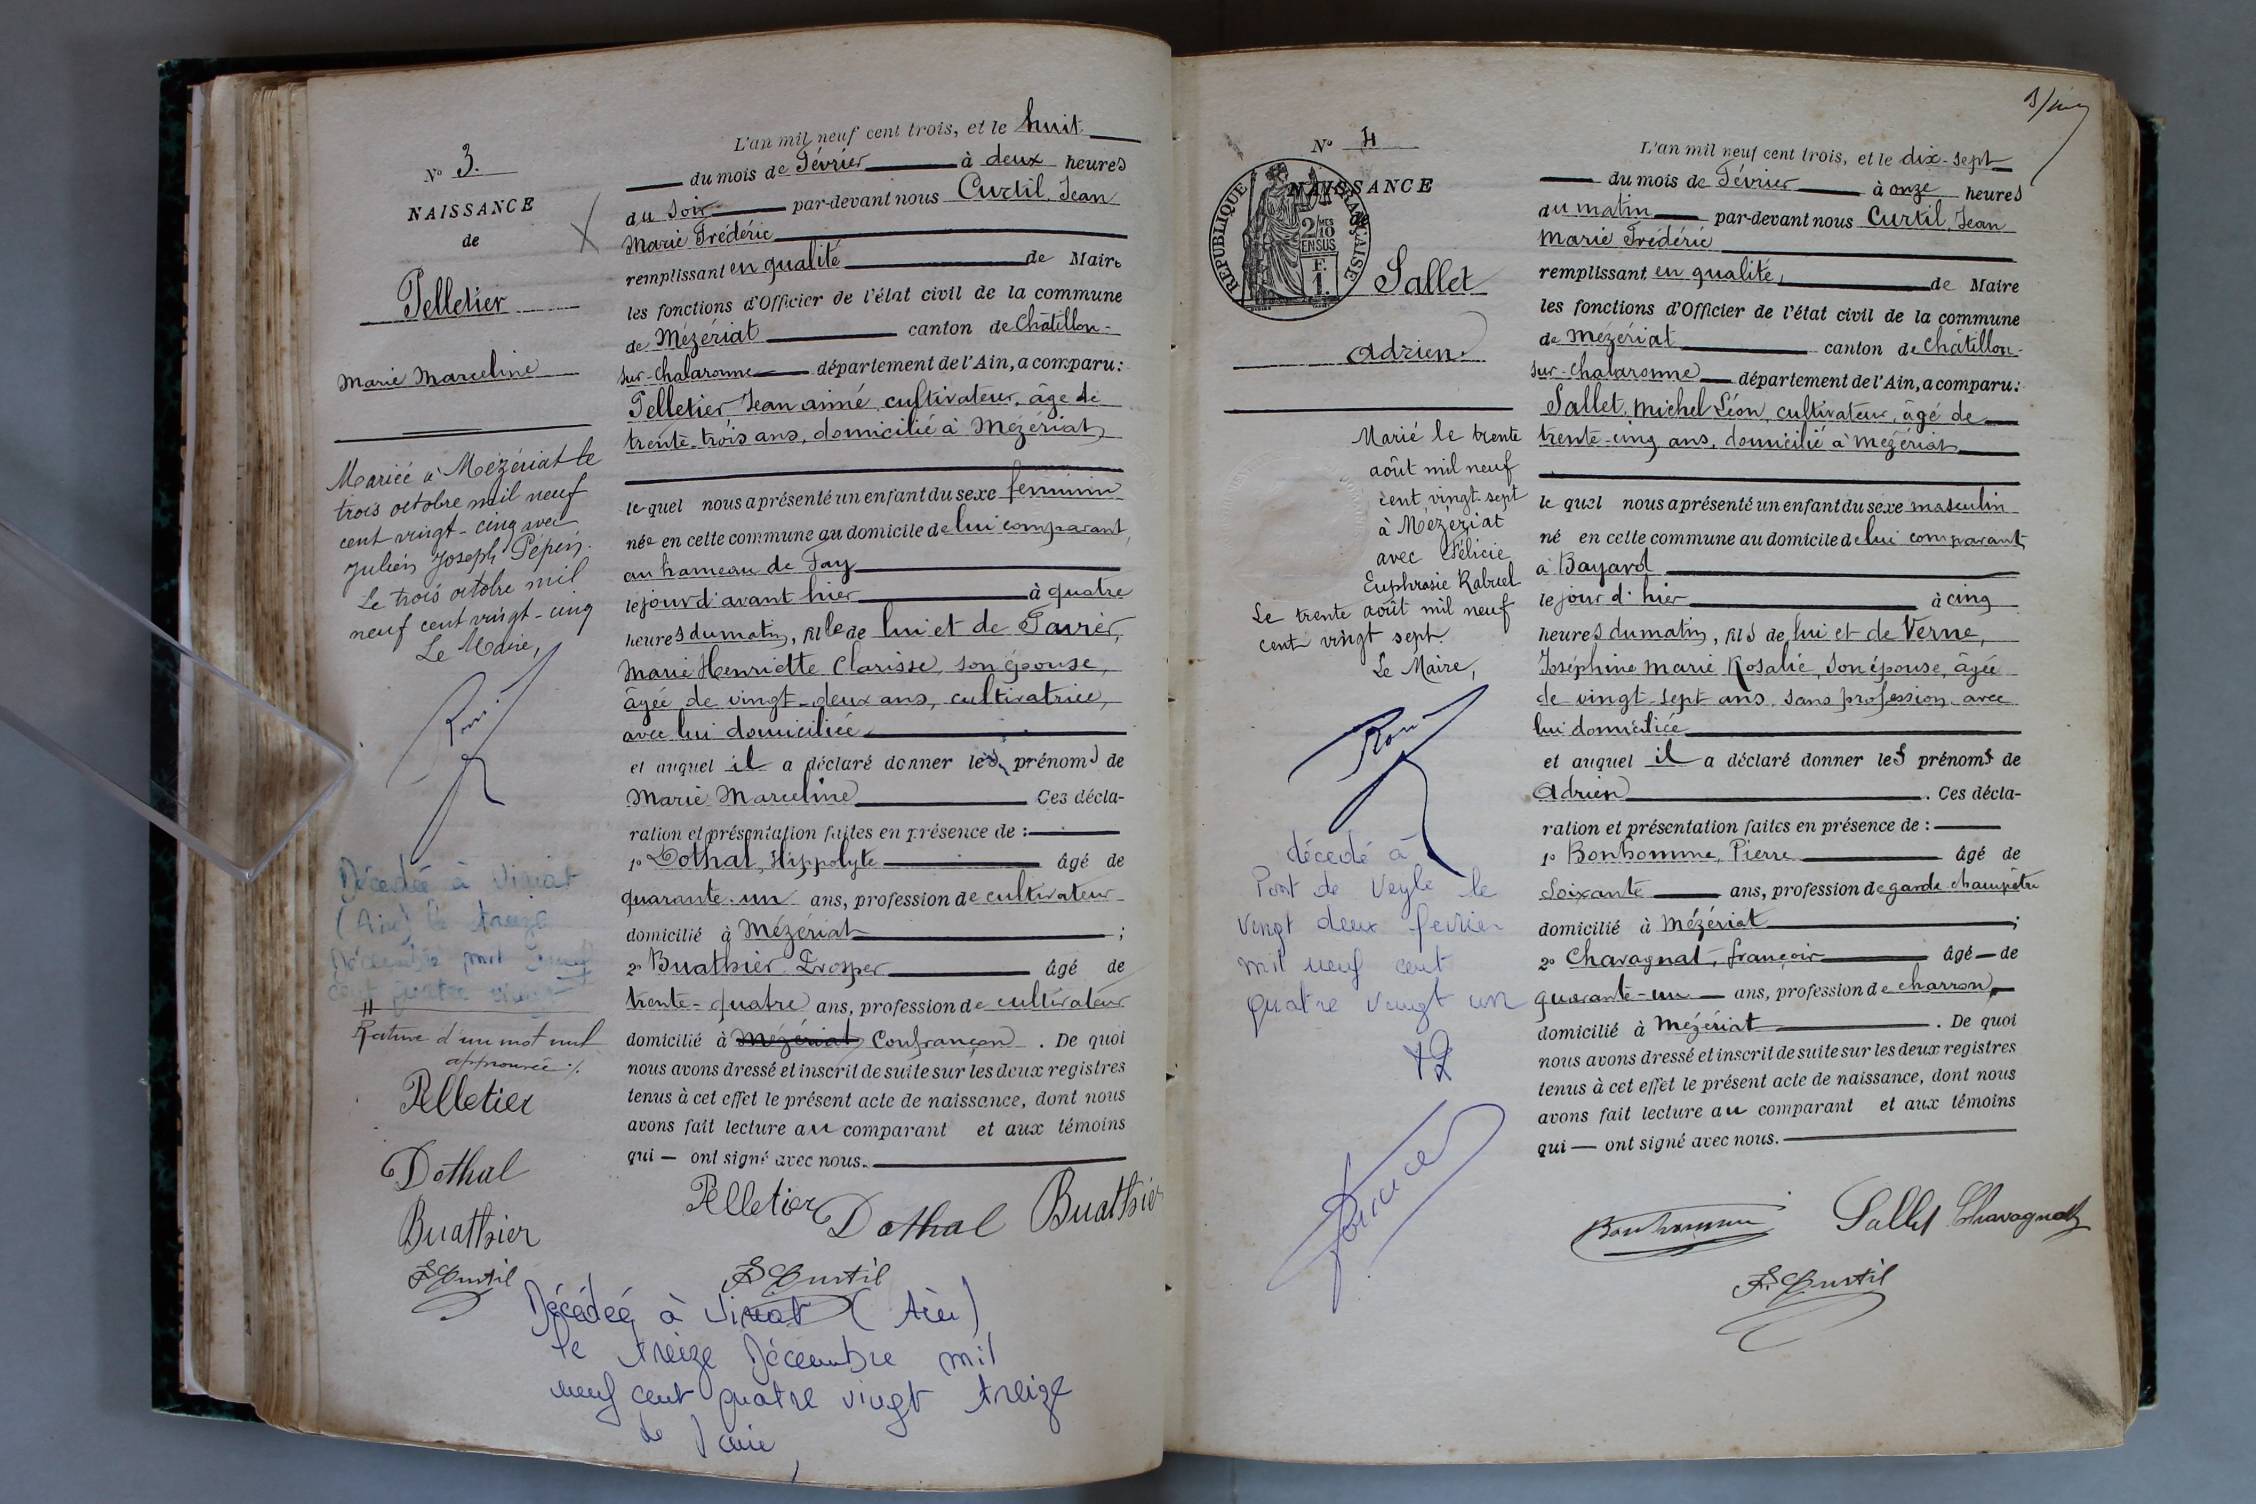 N° 3.
NAISSANCE
de
Pelletier
Marie Marceline
Mariée à Mézériat le
trois octobre mil neuf
cent vingt-cinq avec
Julien Joseph Pépin.
Le trois octobre mil
neuf cent vingt-cinq
Le Maire,
Décédée à Viriat
(Ain) le treize
Décembre mil neuf
cent quatre vingt
Rature d'un mot nul
approuvée ./.
Pelletier
Dothal
Buathier
F Curtil
L'an mil neuf cent trois, et le huit
du mois de Février à deux heures
du soir par-devant nous Curtil, Jean
Marie Frédéric
remplissant en qualité de Maire
les fonctions d'Officier de l'état civil de la commune
de Mézériat canton de Châtillon-
sur-Chalaronne département de l'Ain, a comparu:
Pelletier Jean aimé, cultivateur, âgé de
trente-trois ans, domicilié à Mézériat
lequel nous a présenté un enfant du sexe feminin
née en cette commune au domicile de lui comparant,
au hameau de Fay
le jour d'avant hier à quatre
heures du matin, fille de lui et de Favier,
Marie Henriette Clarisse, son épouse,
âgée de vingt-deux ans, cultivatrice,
avec lui domiciliée
et auquel il a déclaré donner les prénoms de
Marie Marceline Ces décla-
ration et présentation faites en présence de :
1° Dothal, Hippolyte âgé de
quarante-un ans, profession de cultivateur
domicilié à Mézériat ;
2° Buathier Prosper âgé de
trente-quatre ans, profession de cultivateur
domicilié à Mézériat Confrançon . De quoi
nous avons dressé et inscrit de suite sur les deux registres
tenus à cet effet le présent acte de naissance, dont nous
avons fait lecture au comparant et aux témoins
qui — ont signé avec nous.
Pelletier Dothal Buathier
F Curtil
Décédée à Viriat (Ain)
le treize Décembre mil
neuf cent quatre vingt treize
N° 4
NAISSANCE
RÉPUBLIQUE FRANÇAISE
2/10 EN SUS
F. 1.
Sallet
Adrien.
Marié le trente
août mil neuf
cent vingt-sept
à Mézériat
avec Félicie
Euphrasie Rabuel
Le trente août mil neuf
cent vingt sept.
Le Maire,
décedé à
Pont de Veyle le
vingt deux fevrier
mil neuf cent
quatre vingt un
L'an mil neuf cent trois, et le dix-sept
du mois de Février à onze heures
du matin par-devant nous Curtil, Jean
Marie Frédéric
remplissant en qualité, de Maire
les fonctions d'Officier de l'état civil de la commune
de Mézériat canton de Châtillon-
sur-Chalaronne département de l'Ain, a comparu:
Sallet, Michel Léon, cultivateur, âgé de
trente-cinq ans, domicilié à Mézériat
lequel nous a présenté un enfant du sexe masculin
né en cette commune au domicile de lui comparant
à Bayard
le jour d'hier à cinq
heures du matin, fils de lui et de Verne,
Joséphine Marie Rosalie, son épouse, âgée
de vingt-sept ans, sans profession, avec
lui domiciliée
et auquel il a déclaré donner les prénoms de
Adrien . Ces décla-
ration et présentation faites en présence de :
1° Bonhomme, Pierre âgé de
soixante ans, profession de garde champêtre
domicilié à Mézériat ;
2° Chavagnat, françois âgé de
quarante-un ans, profession de charron,
domicilié à Mézériat . De quoi
nous avons dressé et inscrit de suite sur les deux registres
tenus à cet effet le présent acte de naissance, dont nous
avons fait lecture au comparant et aux témoins
qui — ont signé avec nous.
Bonhomme Sallet Chavagnat
F. Curtil